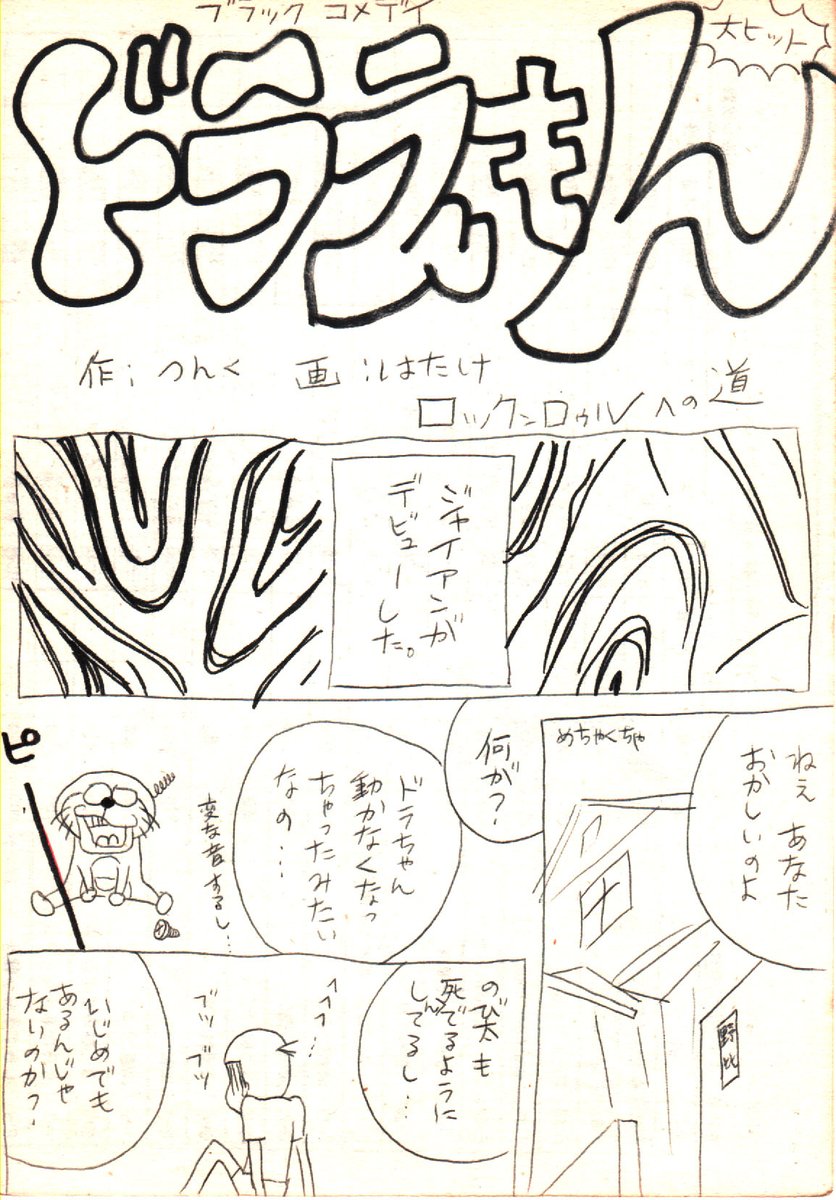 ブラック コメディ
大ヒット
ドラえもん
作；つんく　画：はたけ
ロックンロゥルへの道
ジャイアンが
デビューした。
ねえ あなた
おかしいのよ
めちゃくちゃ
野比
何が？
ドラちゃん
動かなくなっ
ちゃったみたい
なの…
変な音するし…
ピ
のび太も
死んでるように
してるし…
へへへ…
ブツブツ
いじめでも
あるんじゃ
ないのか？